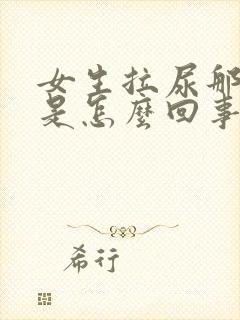 女生拉尿那
是怎麼回事
希行